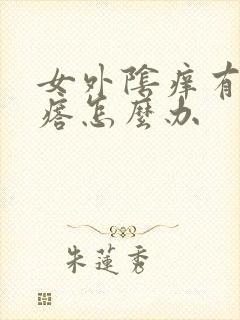 女外陰痒有
痞怎麼办
朱蓮秀